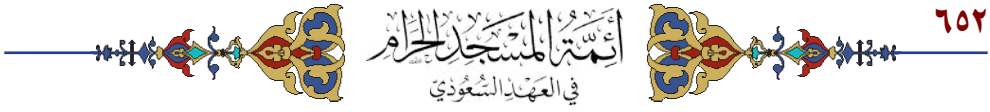 ٦٥٢
أَئِمَّةُ المَسْجِدِ الحَرَامِ
في العَهْدِ السُّعُودِيّ